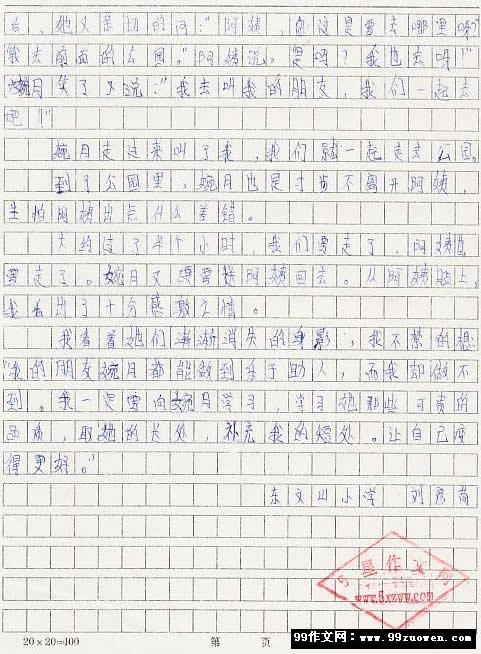 后，她又亲切的问：“阿姨，您这是要去哪里呀？”
“我去前面的公园。”阿姨说。“是吗？我也去呀！”
婉月笑了又说：“我去叫我的朋友，我们一起去
吧！”
婉月走过来叫了我，我们就一起走去公园。
到了公园里，婉月也是寸肯不离开阿姨，
生怕阿姨出点什么差错。
大约过了半个小时，我们要走了，阿姨也
要走了。婉月又要送阿姨回去。从阿姨脸上，
我看出了十分感激之情。
我看着她们渐渐消失的身影，我不禁的想：
“我的朋友婉月都能做到乐于助人，而我却做不
到。我一定要向婉月学习，学习她那些可贵的
品质，取她的长处，补充我的短处。让自己变
得更好。”
东文山小学 刘彦
5星作文网
www.5xzww.com
20×20=400 第 页
99作文网：www.99zuowen.com